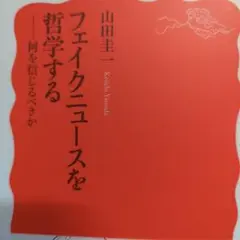 山田圭一
Keiichi Yamada
フェイクニュースを
哲学する
──何を信じるべきか